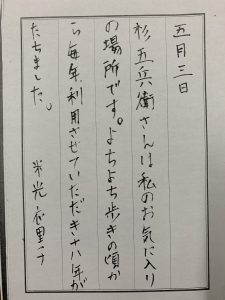 五月三日
杉五兵衛さんは私のお気に入り
の場所です。よちよち歩きの頃か
ら毎年利用させていただき十八年が
たちました。